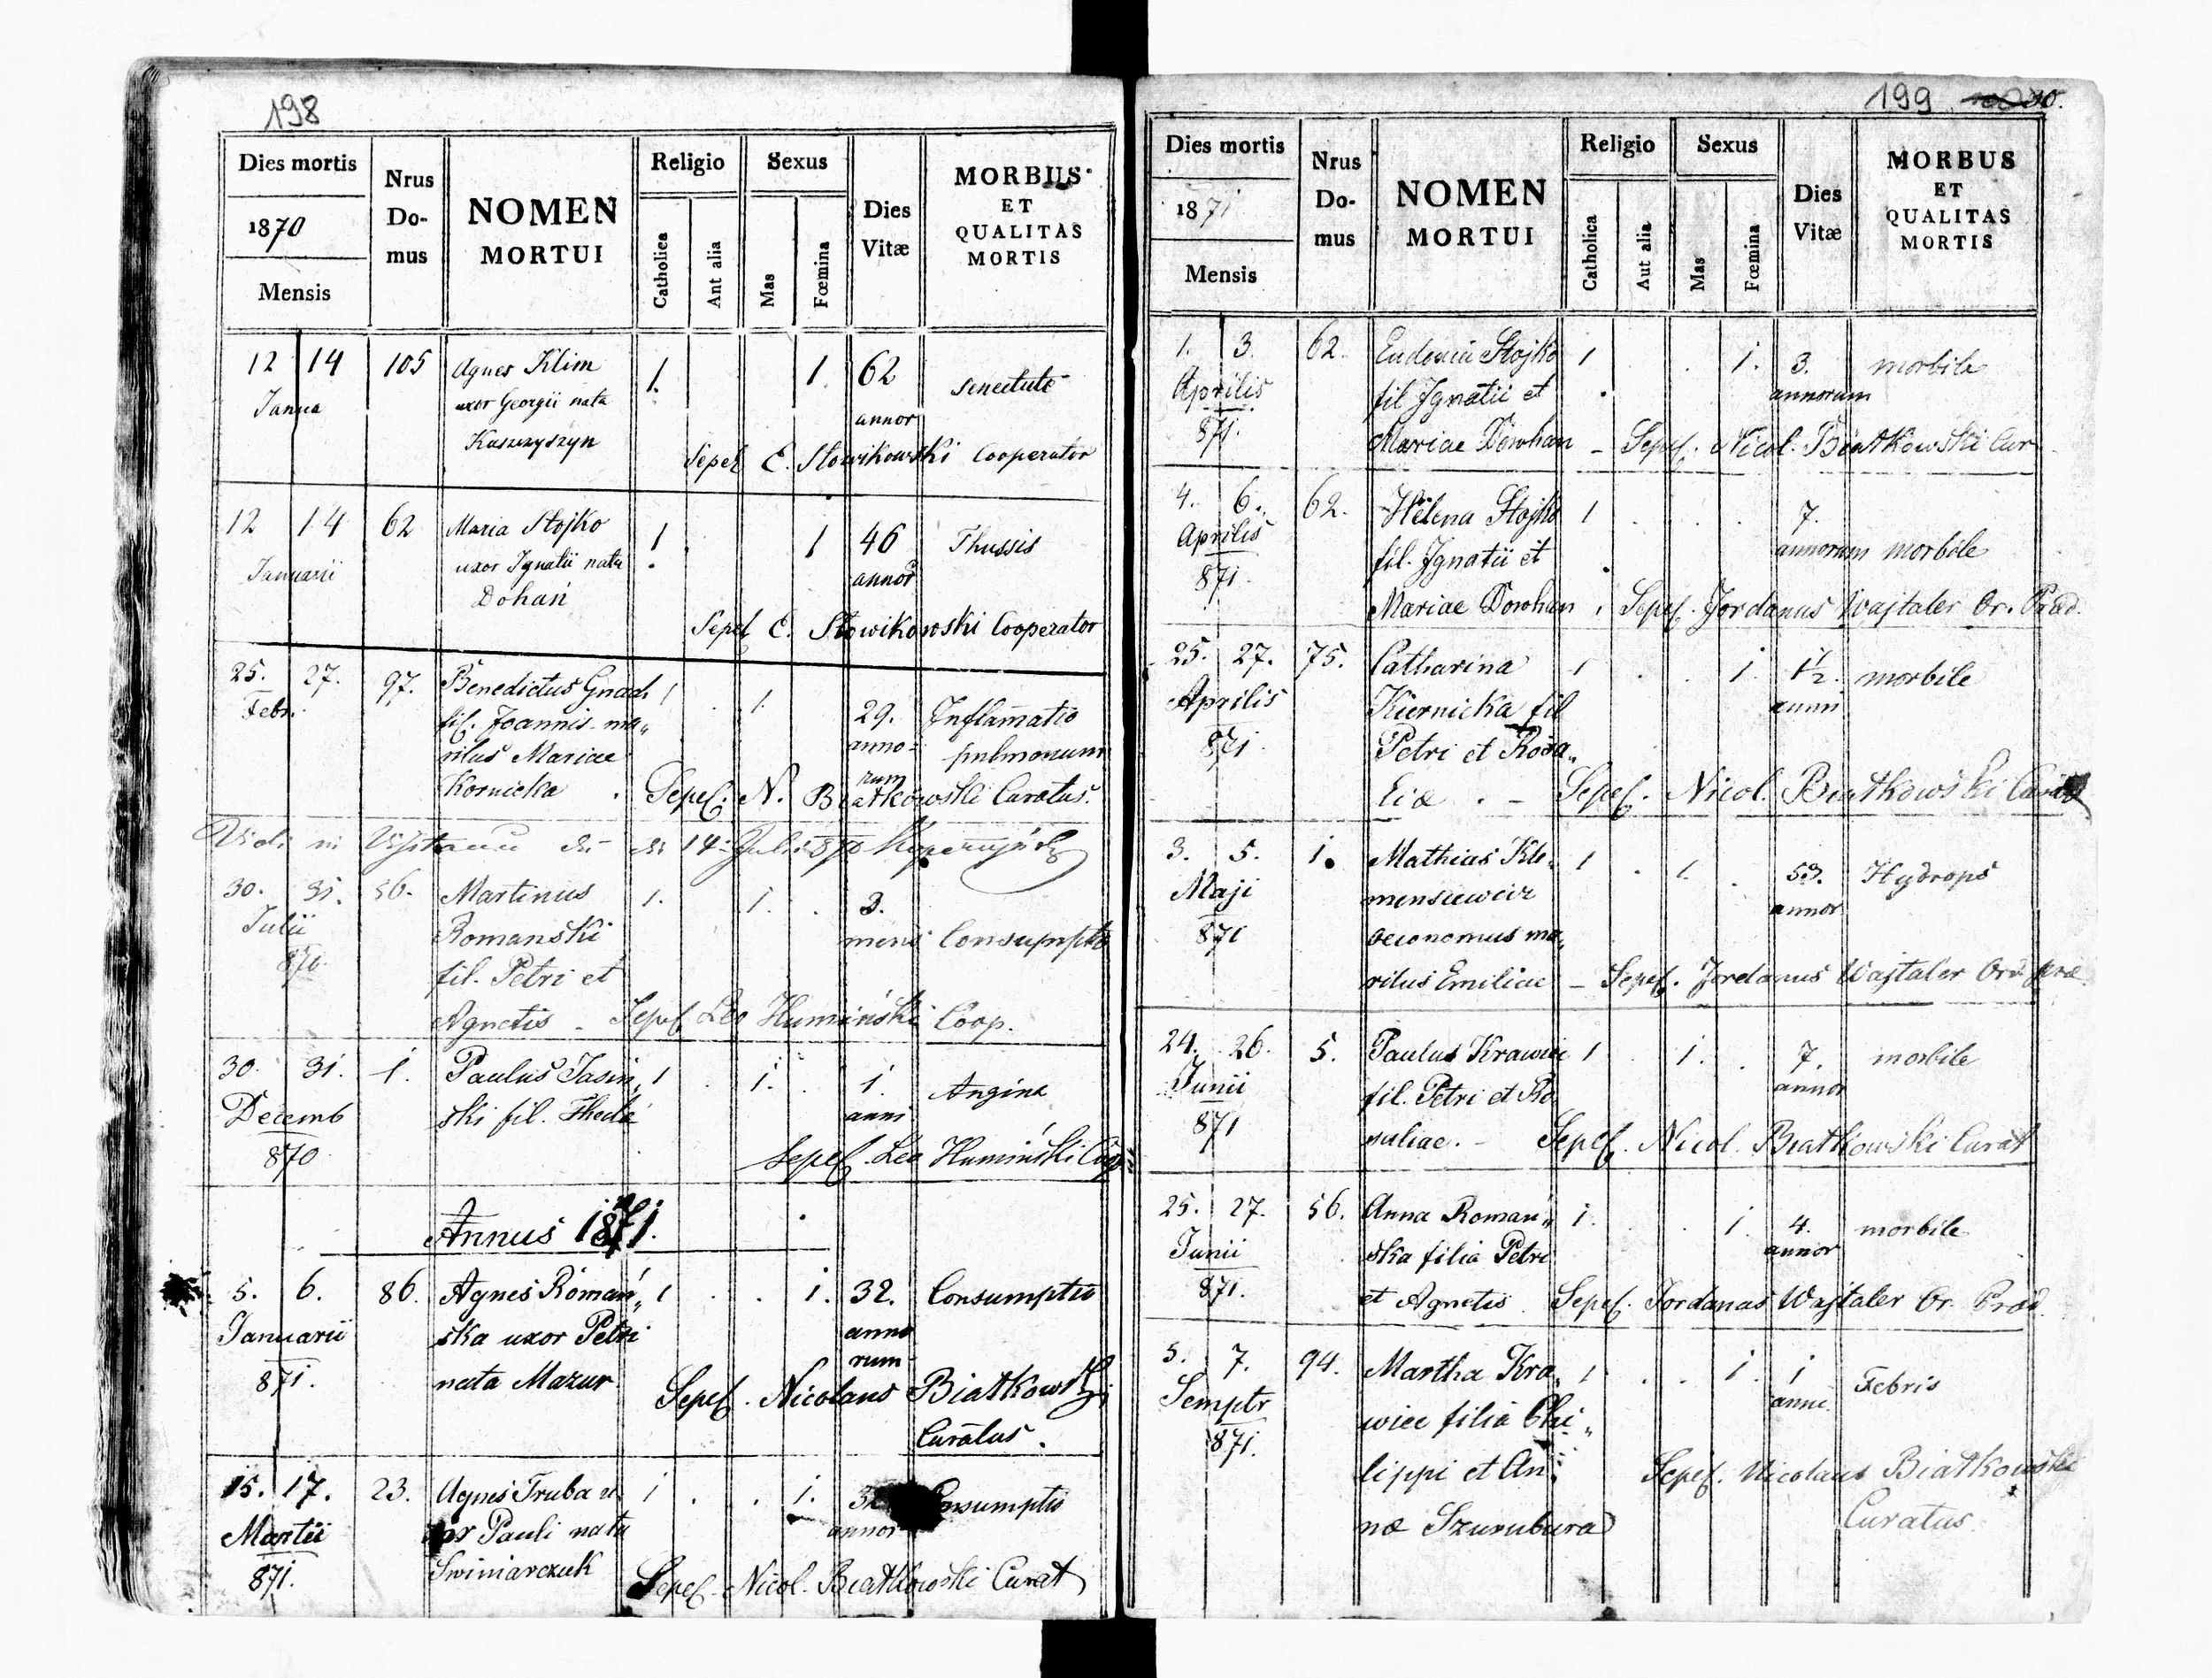 198
Dies mortis
1870
Mensis
Nrus Do- mus
NOMEN
MORTUI
Religio
Catholica
Ant alia
Sexus
Mas
Fœmina
Dies Vitæ
MORBUS
ET
QUALITAS
MORTIS
12 14 105 Agnes Klim 1. 1 62 senectute
Janua uxor Georgii nata annor
Kaszczyszyn
Sepel E. Słowikowski Cooperator
12 14 62 Maria Stojko 1. 1 46 Thussis
Januarii uxor Ignatii nata annor
Dohań
Sepel E. Słowikowski Cooperator
25. 27. 97. Benedictus Gnad 1 . 1. 29. Inflamatio
Febr. fil. Joannis ma„ anno= pulmonum
ritus Mariae rum
Kornicka . Sepel. N. Białkowski Curatus.
Vidi in 14 Julii 870
30. 31. 56. Martinus 1. 1. . 3. Consumptio
Julii Romanski mens
870. fil. Petri et
Agnetis - Sepel Leo Humiński Coop.
30. 31. 1. Paulus Jasin„ 1 . 1. . 1. Angina
Decemb ski fil. Theclæ anni
870 Sepel. Leo Humiński Coop
Annus 1871.
5. 6. 86. Agnes Román„ 1 . . 1. 32. Consumptio
Januarii ska uxor Petri anno
871. nata Mazur rum
Sepel. Nicolaus Białkowski
Curatus.
15. 17. 23. Agnes Truba u 1 . . 1. Consumptio
Martii xor Pauli nata annor
871. Swiniarczuk
Sepel. Nicol. Białkowski Curat
199 30.
Dies mortis
1871
Mensis
Nrus Do- mus
NOMEN
MORTUI
Religio
Catholica
Aut alia
Sexus
Mas
Fœmina
Dies Vitæ
MORBUS
ET
QUALITAS
MORTIS
1. 3. 62. Eudoxia Stojko 1 . . 1. 3. morbile
Aprilis fil Ignatii et annorum
871. Mariae Dowhan - Sepel. Nicol. Białkowski Cur
4. 6. 62. Helena Stojko 1 . . . 7.
Aprilis fil. Ignatii et annorum morbile
871. Mariae Dowhan . Sepel. Jordanus Wajtaler Or. Præd.
25. 27. 75. Catharina 1 . . 1. 1½. morbile
Aprilis Kiernicka fil anni
871. Petri et Rosa„
liæ . - Sepel. Nicol. Białkowski Curat
3. 5. 1. Mathias Kle„ 1 . 1. . 53. Hydrops
Maji mensiewicz annor
871 oeconomus ma„
ritus Emiliae - Sepel. Jordanus Wajtaler Ord. præ
24. 26. 5. Paulus Krawiec 1 . 1. . 7. morbile
Junii fil. Petri et Ro annor
871 saliae. - Sepel. Nicol. Białkowski Curat
25. 27. 56. Anna Roman„ 1. . . 1 4. morbile
Junii ska filia Petri annor
871. et Agnetis . Sepel. Jordanus Wajtaler Or. Præd.
5. 7. 94. Martha Kra„ 1 . . 1. 1 Febris
Semptr wiec filia Phi„ anni
871. lippi et An„ Sepel. Nicolaus Białkowski
næ Szurubura Curatus